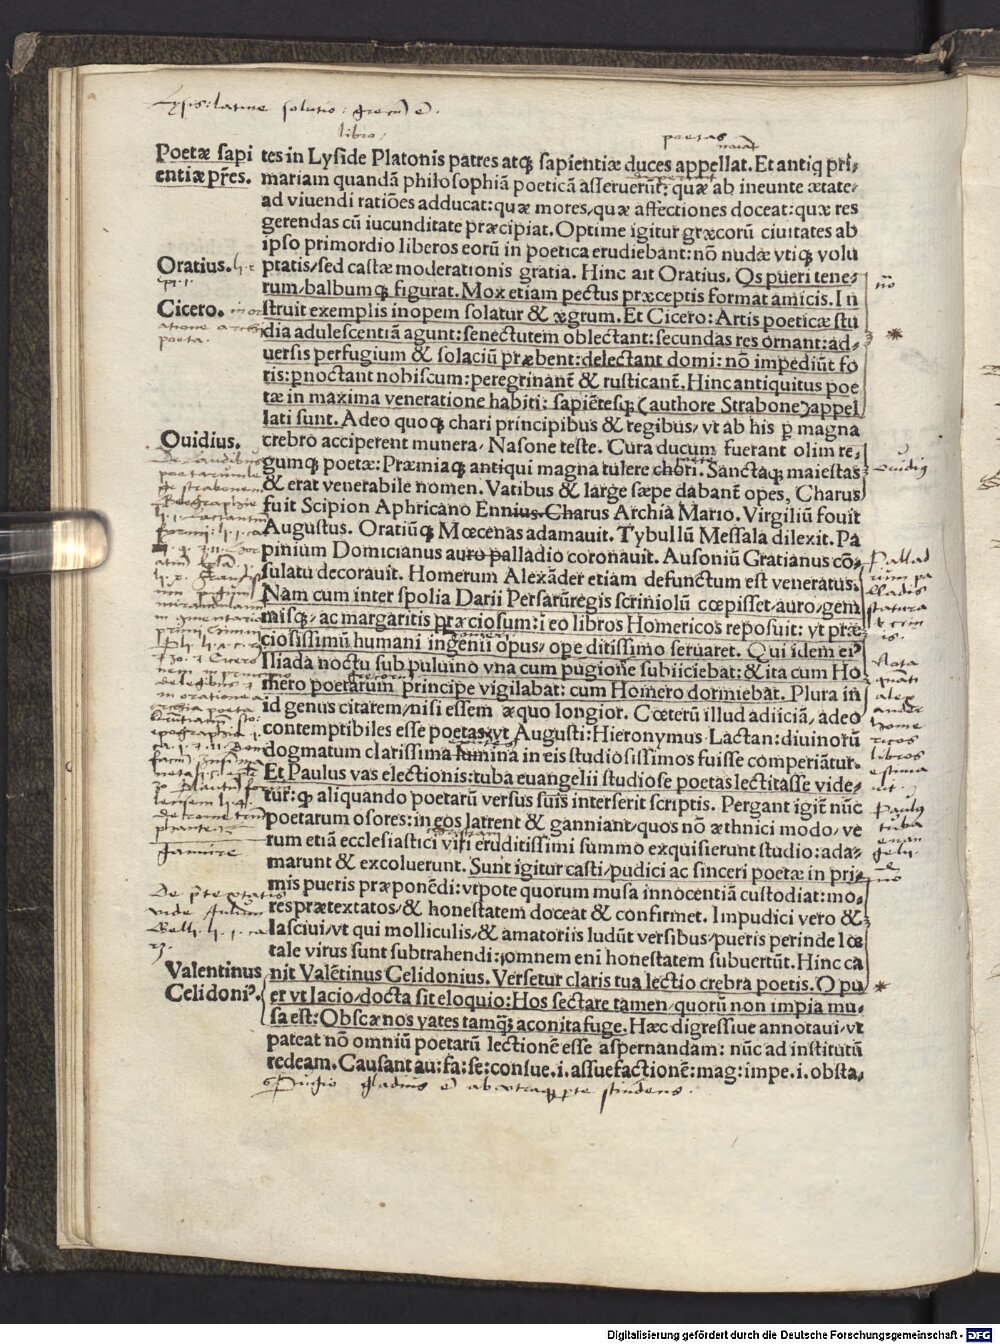 Lysis: latine solutio: grecũ ē.
libro
poetas
Poetæ sapi
entiæ pr̃es.
tes in Lyside Platonis patres atq; sapientiæ duces appellat. Et antiq pri-
mariam quandã philosophiã poeticã asseruerũt: quæ ab ineunte ætate
ad viuendi ratiões adducat: quæ mores, quæ affectiones doceat: quæ res
gerendas cũ iucunditate præcipiat. Optime igitur græcorũ ciuitates ab
ipso primordio liberos eorũ in poetica erudiebant: nõ nudæ vtiq; volu
Oratius.
ptatis/sed castæ moderationis gratia. Hinc ait Oratius. Os pueri tene-
rum/balbumq; figurat. Mox etiam pectus præceptis format amicis. In
Cicero.
struit exemplis inopem solatur & ægrum. Et Cicero: Artis poeticæ stu
dia adulescentiã agunt: senectutem oblectant: secundas res ornant: ad-
uersis perfugium & solaciũ præbent: delectant domi: nõ impediũt fo
ris: pnoctant nobiscum: peregrinant̃ & rusticant̃. Hinc antiquitus poe
tæ in maxima veneratione habiti: sapiẽtesq; (authore Strabone) appel
lati sunt. Adeo quoq; chari principibus & regibus/ vt ab his p magna
Ouidius.
crebro acciperent munera/ Nasone teste. Cura ducum fuerant olim re-
gumq; poetæ: Præmiaq; antiqui magna tulere chori. Sanctaq; maiestas
& erat venerabile nomen. Vatibus & large sæpe dabant̃ opes, Charus
fuit Scipion Aphricano Ennius. Charus Archia Mario. Virgiliũ fouit
Augustus. Oratiũq; Mœcenas adamauit. Tybullũ Messala dilexit. Pa
pinium Domicianus auro palladio coronauit. Ausoniũ Gratianus cõ-
sulatu decorauit. Homerum Alexãder etiam defunctum est veneratus.
Nam cum inter spolia Darii Persarũ regis scriniolũ cœpisset/auro/gem
misq;/ ac margaritis præciosum: i eo libros Homericos reposuit: vt præ
ciosissimũ humani ingenii opus/ ope ditissimo seruaret. Qui idem eiꝰ
Iliada noctu sub puluino vna cum pugione subiiciebat: & ita cum Ho
mero poetarum principe vigilabat: cum Homero dormiebat. Plura in
id genus citarem/nisi essem æquo longior. Cœterũ illud adiiciã, adeo
contemptibiles esse poetas/vt Augusti: Hieronymus Lactan: diuinorũ
dogmatum clarissima lumina in eis studiosissimos fuisse comperiãtur.
Et Paulus vas electionis: tuba euangelii studiose poetas lectitasse vide-
tur: q; aliquando poetarũ versus suis interserit scriptis. Pergant igit̃ nũc
poetarum osores: in eos latrent & ganniant/quos nõ æthnici modo/ ve
rum etiã ecclesiastici viri eruditissimi summo exquisierunt studio: ada-
marunt & excoluerunt. Sunt igitur casti/pudici ac sinceri poetæ in pri-
mis pueris præponẽdi: vtpote quorum musa innocentiã custodiat: mo-
res prætextatos/& honestatem doceat & confirmet. Impudici vero &
lasciui/vt qui molliculis/& amatoriis ludũt versibus/pueris perinde lœ
tale virus sunt subtrahendi: omnem eni honestatem subuertũt. Hinc ca
Valentinus
Celidoniꝰ.
nit Valẽtinus Celidonius. Versetur claris tua lectio crebra poetis. O pu
er vt lacio/docta sit eloquio: Hos sectare tamen/ quorũ non impia mu-
sa est: Obscænos vates tamq; aconita fuge. Hæc digressiue annotaui/vt
pateat nõ omniũ poetarũ lectionẽ esse aspernandam: nũc ad institutũ
redeam. Causant au: fa: se: consue. i. assuefactionẽ: mag: impe. i. obsta-
Pugio gladius ē ab vtraq; pte scindens.
gannire
Ouidiꝰ
Palład
Nota
alex
ander
home
ricos
libros
estima
uit.
Paulꝰ
tuba
euan
gelii
Digitalisierung gefördert durch die Deutsche Forschungsgemeinschaft - DFG